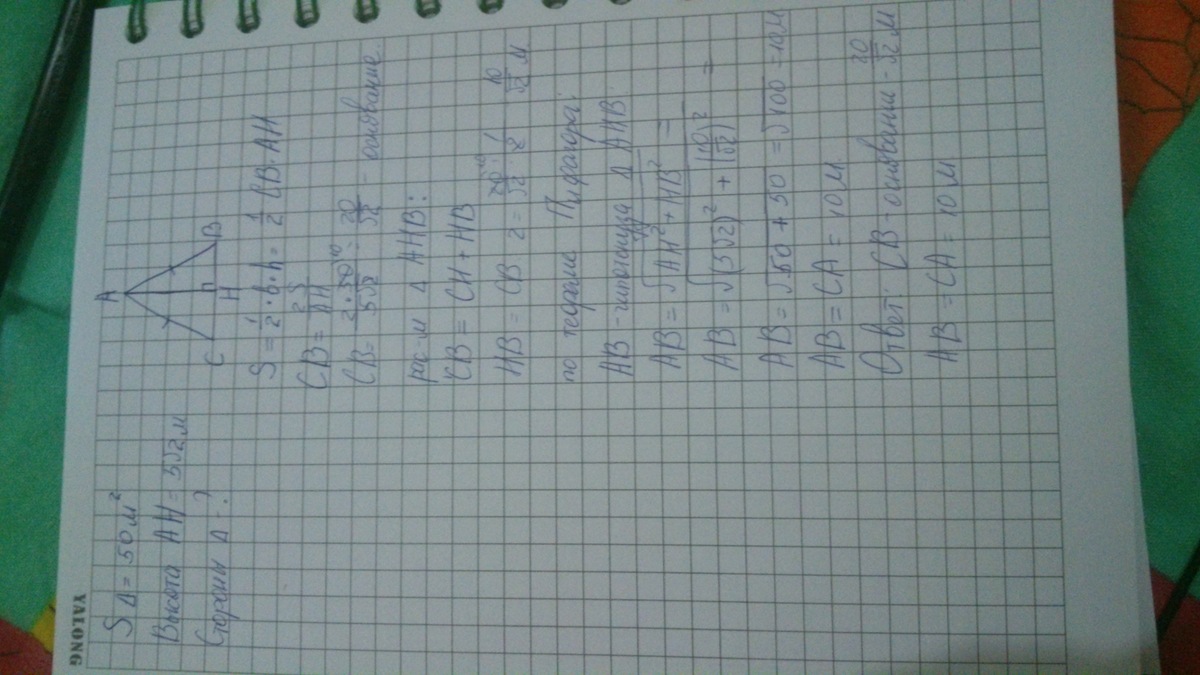 YALONG
S Δ = 50 м²
Высота AH = 5√2 м
Стороны Δ - ?
A
C H B
S = 1/2 · b · h = 1/2 CB · AH
CB = 2S/AH
CB = 2·50¹⁰/5√2 = 20/√2 - основание
рас-м Δ AHB:
CB = CH + HB
HB = CB : 2 = 20¹⁰/√2 · 1/2 = 10/√2 м
по теореме Пифагора:
AB - гипотенуза Δ AHB:
AB = √AH² + HB² =
AB = √(5√2)² + (10/√2)² =
AB = √50 + 50 = √100 = 10 м
AB = CA = 10 м
Ответ: CB - основании - 20/√2 м
AB = CA = 10 м